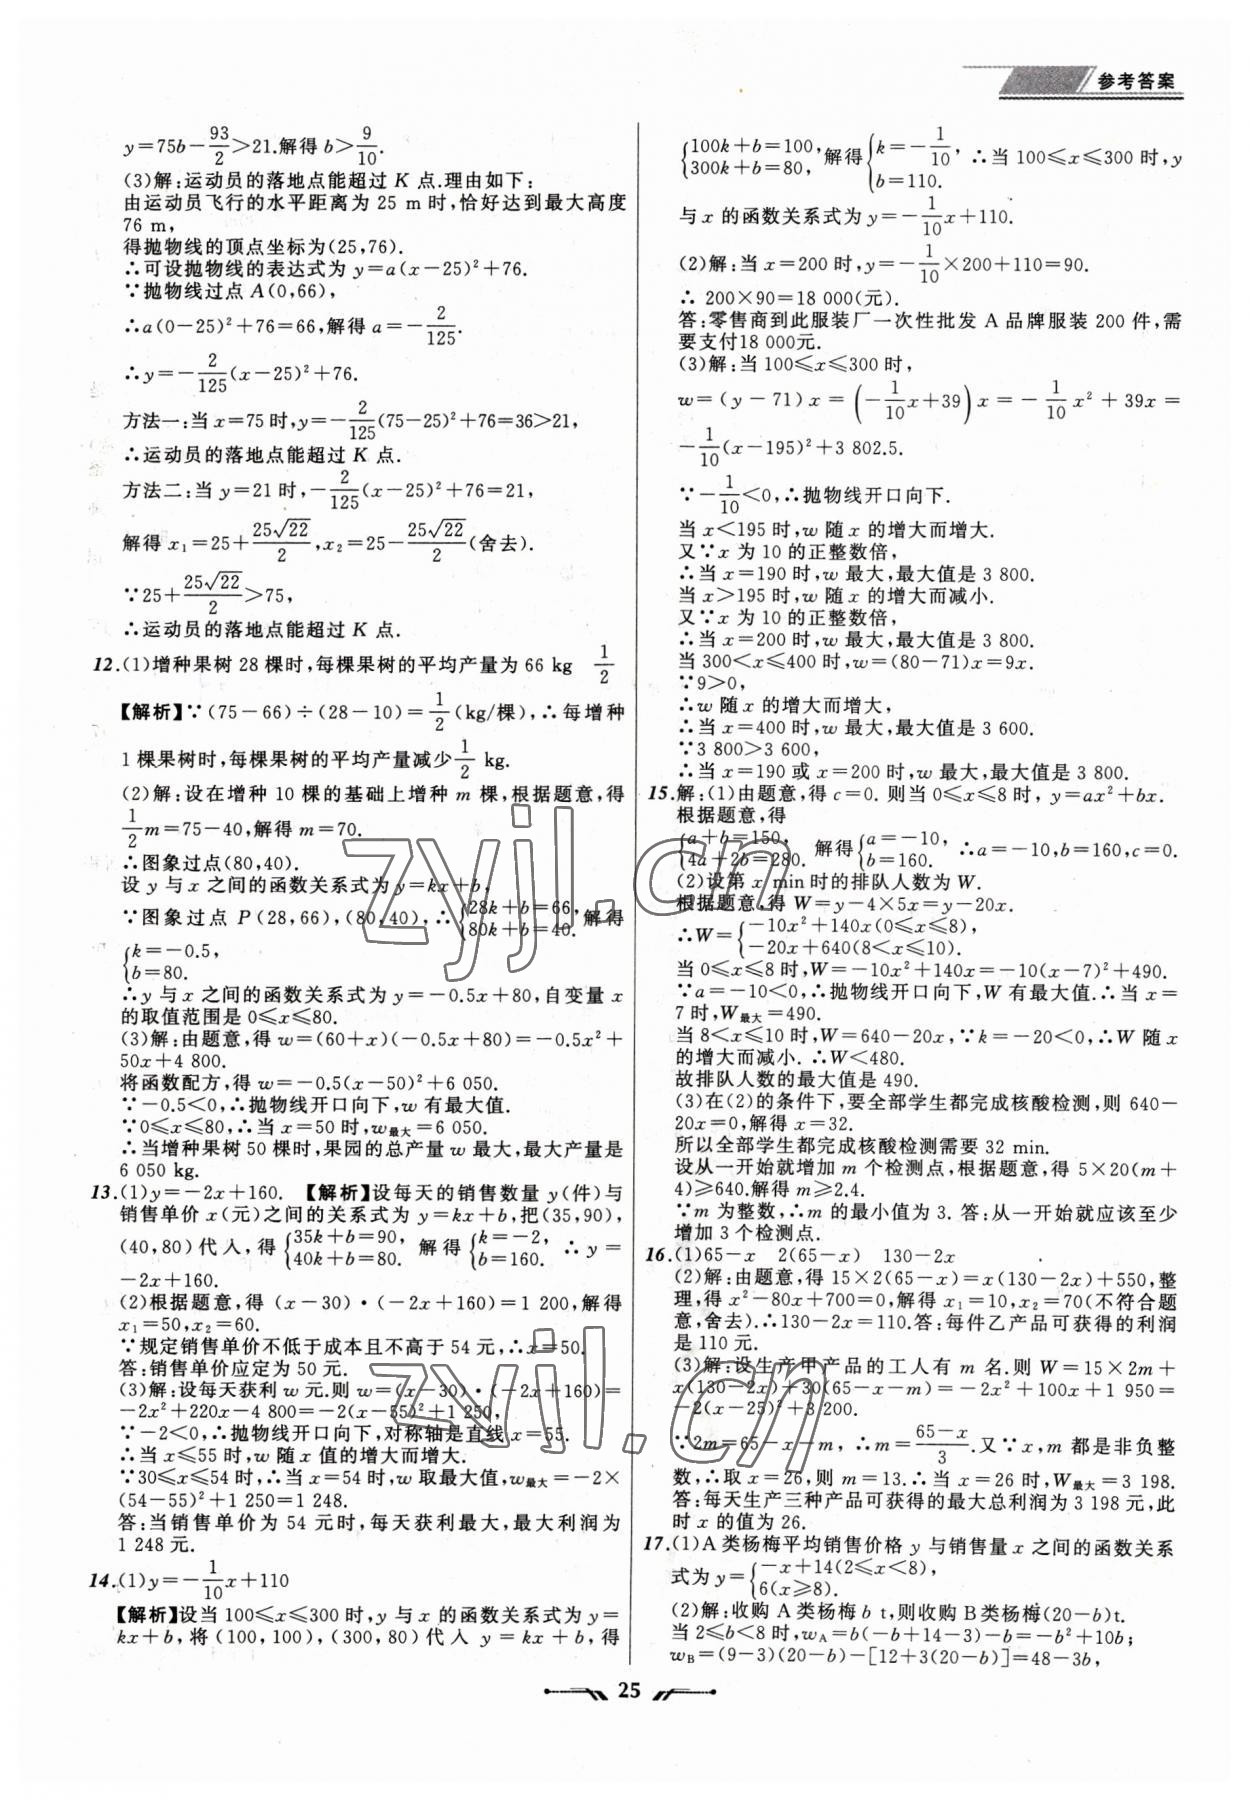 参考答案
y=75b-93/2>21.解得 b>9/10.
(3)解:运动员的落地点能超过 K 点.理由如下:
由运动员飞行的水平距离为 25 m 时,恰好达到最大高度
76 m,
得抛物线的顶点坐标为(25,76).
∴可设抛物线的表达式为 y=a(x-25)²+76.
∵抛物线过点 A(0,66),
∴a(0-25)²+76=66,解得 a=-2/125.
∴y=-2/125(x-25)²+76.
方法一:当 x=75 时,y=-2/125(75-25)²+76=36>21,
∴运动员的落地点能超过 K 点.
方法二:当 y=21 时,-2/125(x-25)²+76=21,
解得 x₁=25+25√22/2,x₂=25-25√22/2(舍去).
∵25+25√22/2>75,
∴运动员的落地点能超过 K 点.
12.(1)增种果树 28 棵时,每棵果树的平均产量为 66 kg 1/2
【解析】∵(75-66)÷(28-10)=1/2(kg/棵),∴每增种
1 棵果树时,每棵果树的平均产量减少1/2 kg.
(2)解:设在增种 10 棵的基础上增种 m 棵,根据题意,得
1/2m=75-40,解得 m=70.
∴图象过点(80,40).
设 y 与 x 之间的函数关系式为 y=kx+b,
∵图象过点 P(28,66),(80,40),∴{28k+b=66, 80k+b=40. 解得
{k=-0.5, b=80.
∴y 与 x 之间的函数关系式为 y=-0.5x+80,自变量 x
的取值范围是 0≤x≤80.
(3)解:由题意,得 w=(60+x)(-0.5x+80)=-0.5x²+
50x+4 800.
将函数配方,得 w=-0.5(x-50)²+6 050.
∵-0.5<0,∴抛物线开口向下,w 有最大值.
∵0≤x≤80,∴当 x=50 时,w最大=6 050.
∴当增种果树 50 棵时,果园的总产量 w 最大,最大产量是
6 050 kg.
13.(1)y=-2x+160. 【解析】设每天的销售数量 y(件)与
销售单价 x(元)之间的关系式为 y=kx+b,把(35,90),
(40,80)代入,得{35k+b=90, 40k+b=80. 解得{k=-2, b=160. ∴y=
-2x+160.
(2)根据题意,得 (x-30)·(-2x+160)=1 200,解得
x₁=50,x₂=60.
∵规定销售单价不低于成本且不高于 54 元,∴x=50.
答:销售单价应定为 50 元.
(3)解:设每天获利 w 元.则 w=(x-30)·(-2x+160)=
-2x²+220x-4 800=-2(x-55)²+1 250,
∵-2<0,∴抛物线开口向下,对称轴是直线 x=55.
∴当 x≤55 时,w 随 x 值的增大而增大.
∵30≤x≤54 时,∴当 x=54 时,w 取最大值,w最大=-2×
(54-55)²+1 250=1 248.
答:当销售单价为 54 元时,每天获利最大,最大利润为
1 248 元.
14.(1)y=-1/10x+110
【解析】设当 100≤x≤300 时,y 与 x 的函数关系式为 y=
kx+b,将 (100,100),(300,80) 代入 y=kx+b,得
{100k+b=100, 300k+b=80, 解得{k=-1/10, b=110. ∴当 100≤x≤300 时,y
与 x 的函数关系式为 y=-1/10x+110.
(2)解:当 x=200 时,y=-1/10×200+110=90.
∴ 200×90=18 000(元).
答:零售商到此服装厂一次性批发 A 品牌服装 200 件,需
要支付18 000元.
(3)解:当 100≤x≤300 时,
w=(y-71)x=(-1/10x+39)x=-1/10x²+39x=
-1/10(x-195)²+3 802.5.
∵-1/10<0,∴抛物线开口向下.
当 x<195 时,w 随 x 的增大而增大.
又∵x 为 10 的正整数倍,
∴当 x=190 时,w 最大,最大值是 3 800.
当 x>195 时,w 随 x 的增大而减小.
又∵x 为 10 的正整数倍,
∴当 x=200 时,w 最大,最大值是 3 800.
当 300<x≤400 时,w=(80-71)x=9x.
∵9>0,
∴w 随 x 的增大而增大,
∴当 x=400 时,w 最大,最大值是 3 600.
∵3 800>3 600,
∴当 x=190 或 x=200 时,w 最大,最大值是 3 800.
15.解:(1)由题意,得 c=0. 则当 0≤x≤8 时,y=ax²+bx.
根据题意,得
{a+b=150, 4a+2b=280. 解得{a=-10, b=160. ∴a=-10,b=160,c=0.
(2)设第 x min 时的排队人数为 W.
根据题意,得 W=y-4×5x=y-20x.
∴W={-10x²+140x(0≤x≤8), -20x+640(8<x≤10).
当 0≤x≤8 时,W=-10x²+140x=-10(x-7)²+490.
∵a=-10<0,∴抛物线开口向下,W 有最大值.∴当 x=
7 时,W最大=490.
当 8<x≤10 时,W=640-20x,∵k=-20<0,∴W 随 x
的增大而减小. ∴W<480.
故排队人数的最大值是 490.
(3)在(2)的条件下,要全部学生都完成核酸检测,则 640-
20x=0,解得 x=32.
所以全部学生都完成核酸检测需要 32 min.
设从一开始就增加 m 个检测点,根据题意,得 5×20(m+
4)≥640.解得 m≥2.4.
∵m 为整数,∴m 的最小值为 3. 答:从一开始就应该至少
增加 3 个检测点.
16.(1)65-x 2(65-x) 130-2x
(2)解:由题意,得 15×2(65-x)=x(130-2x)+550,整
理,得 x²-80x+700=0,解得 x₁=10,x₂=70(不符合题
意,舍去).∴130-2x=110.答:每件乙产品可获得的利润
是 110 元.
(3)解:设生产甲产品的工人有 m 名.则 W=15×2m+
x(130-2x)+30(65-x-m)=-2x²+100x+1 950=
-2(x-25)²+3 200.
∵2m=65-x-m,∴m=65-x/3.又∵x,m 都是非负整
数,∴取 x=26,则 m=13.∴当 x=26 时,W最大=3 198.
答:每天生产三种产品可获得的最大总利润为 3 198 元,此
时 x 的值为 26.
17.(1)A 类杨梅平均销售价格 y 与销售量 x 之间的函数关系
式为 y={-x+14(2≤x<8), 6(x≥8).
(2)解:收购 A 类杨梅 b t,则收购 B类杨梅(20-b)t.
当 2≤b<8 时,wA=b(-b+14-3)-b=-b²+10b;
wB=(9-3)(20-b)-[12+3(20-b)]=48-3b,
25
zyjl.cn
zyjl.cn